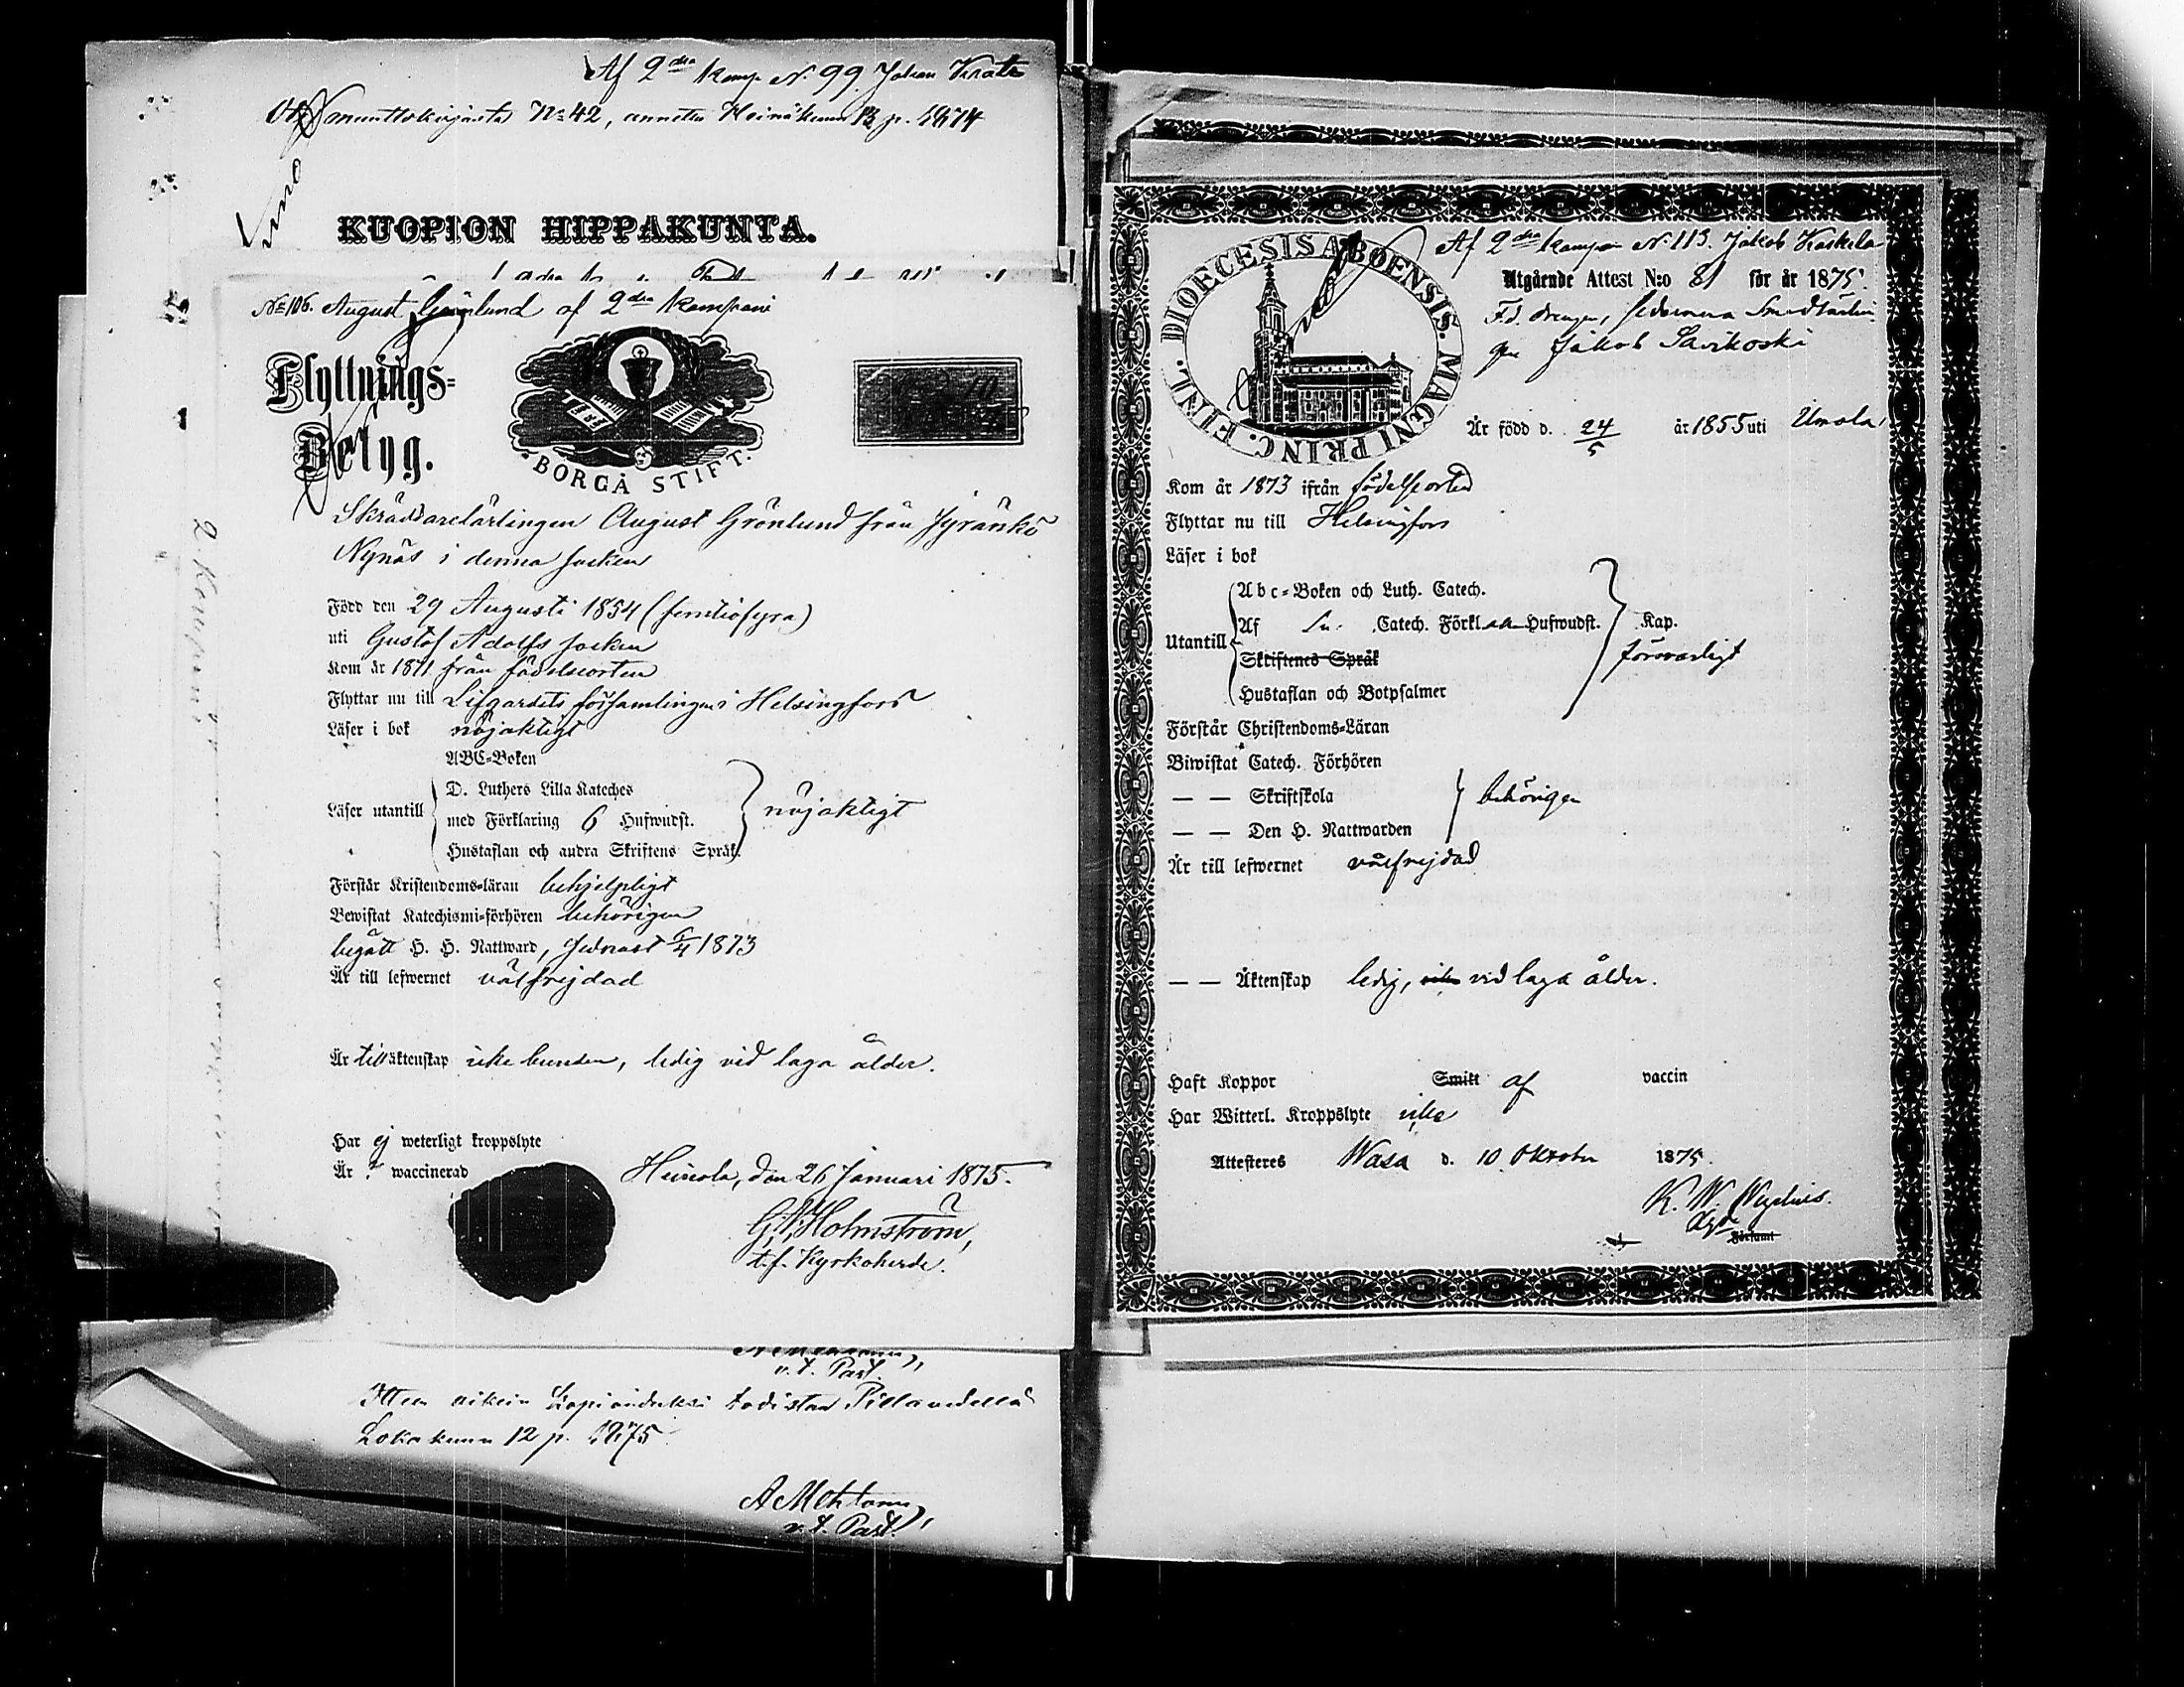 Af 2dra Komp. No 99. Johan
No 42, annettu Heinäkuun 13 p. 1874
KUOPION HIPPAKUNTA.
No 106. August Grönlund af 2dra Kompani
Flyttnings=
Betyg.
BORGÅ STIFT.
Skräddarelärlingen August Grönlund från Jyränkö
Nynäs i denna socken
Född den 29 Augusti 1854 (femtiofyra)
uti Gustaf Adolfs socken
Kom år 1871 från födelseorten
Flyttar nu till Lifgardets församling i Helsingfors
Läser i bok nöjaktigt
ABC-Boken
D. Luthers Lilla Kateches
Läser utantill med Förklaring 6 Hufwudst. nöjaktigt
Hustaflan och andra Skriftens Språk.
Förstår Kristendoms-läran behjelpligt
Bewistat Katechismi-förhören behörigen
begått H. H. Nattward, senast 1873
Är till lefwernet välfrejdad
Är till äktenskap icke bunden, ledig vid laga ålder.
Har ej weterligt kroppslyte
Är waccinerad
Heinola, den 26 Januari 1875.
Holmström,
t.f. Kyrkoherde.
v.t. Past.
oikein kopioiduksi todistaa Pielavedellä
Lokakuun 12 p. 1875
v.t. Past.
2. Kompani
DIOECESIS ABOENSIS. MAGNI PRINC. FINL.
Af 2dra kompani No 113. Jakob Kaskela
Utgående Attest N:o 81 för år 1875.
F.d. drengen, sedermera
Jakob Savikoski
Är född d. 24/5 år 1855 uti
Kom år 1873 ifrån födelseorten
Flyttar nu till Helsingfors
Läser i bok
Abc=Boken och Luth. Catech.
Utantill Af Catech. Förkl. Hufwudst. Kap.
Skriftenes Språk försvarligt
Hustaflan och Botpsalmer
Förstår Christendoms=Läran
Biwistat Catech. Förhören
— — Skriftskola behörigen
— — Den H. Nattwarden
Är till lefwernet välfrejdad
— — Äktenskap ledig, vid laga ålder.
Haft Koppor Smitt af vaccin
Har Witterl. Kroppslyte icke
Attesteres Wasa d. 10 Oktober 1875.
K. W.